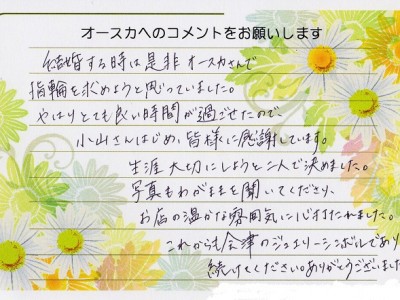 オースカへのコメントをお願いします
結婚する時は是非オースカさんで
指輪を求めようと思っていました。
やはりとても良い時間が過ごせたので、
小山さんはじめ、皆様に感謝しています。
生涯大切にしようと二人で決めました。
写真もわがままを聞いてくださり、
お店の温かな雰囲気に心打たれました。
これからも会津のジュエリーシンボルであり
続けてください。ありがとうございました